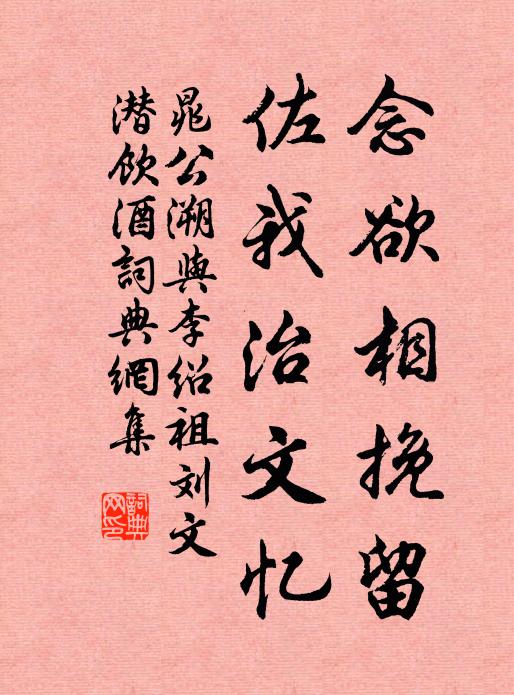 念欲相挽留
佐我治文忆
晁公溯與李绍祖刘文
潜飲酒詞典網集
詞典網印